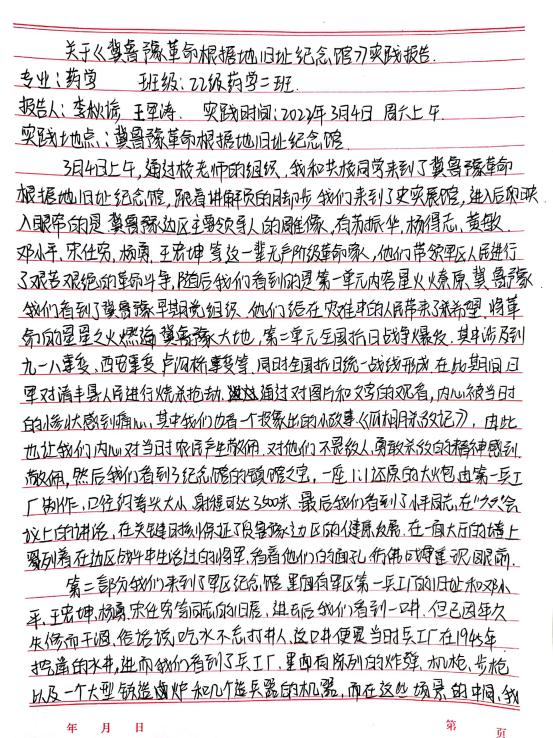 关于《冀鲁豫革命根据地旧址纪念馆》实践报告.
专业：药学 班级：22级药学二班.
报告人：李秋 王军涛. 实践时间：2023年3月4日 周六上午.
实践地点：冀鲁豫革命根据地旧址纪念馆
3月4日上午，通过校老师的组织，我和其校同学来到了冀鲁豫革命
根据地旧址纪念馆，跟着讲解员的脚步我们来到了史实展馆，进入后映
入眼帘的是冀鲁豫边区主要领导人的雕像，有苏振华，杨得志，黄敬
邓小平，宋任穷，杨勇，王宏坤等这一辈无产阶级革命家人，他们带领军区人民进行
了艰苦艰绝的革命斗争，随后我们看到的是第一单元内容星火燎原冀鲁豫.
我们看到了冀鲁豫早期党组织，他们给在灾难中的人民带来了来希望，将革
命的星星之火燃遍冀鲁豫大地，第二单元全国抗日战争爆发，其中涉及到
九一八事变、西安事变、卢沟桥事变等，同时全国抗日统一战线形成，在此期间日
军对清丰县人民进行烧杀抢劫，通过对图片和文字的观看，内心被当时
的惨状感到痛心，其中我们也看一个投象出的小故事《 杀敌记》，由此
也让我们内心对当时农民产生敬佩，对他们不畏敌人，勇敢杀敌的精神感到
敬佩，然后我们看到了纪念馆的镇馆之宝，一座1:1还原的大炮由第一兵工
厂制作，口径约 大小，射程可达3500米.最后我们看到了小平同志，在 会
议上的讲话，在关键时刻保证了冀鲁豫边区的健康发展.在一面大厅的墙上
罗列着在边区战斗中生活过的将军，看着他们的面孔仿佛 眼前.
第二部分我们来到了军区纪念馆里面有军区第一兵工厂的旧址和邓小
平，王宏坤，杨勇，宋任穷等同志的旧居，进去后我们看到一口井.但已因年久
失修而干涸.俗话说，吃水不忘打井人，这口井便是当时兵工厂在1945年
挖凿的水井，进而我们看到了兵工厂.里面有陈列的炸弹，机枪，步枪
以及一个大型铁造 炉和几个造兵器的机器，而在这些场景的中间，我
年 月 日 第 页